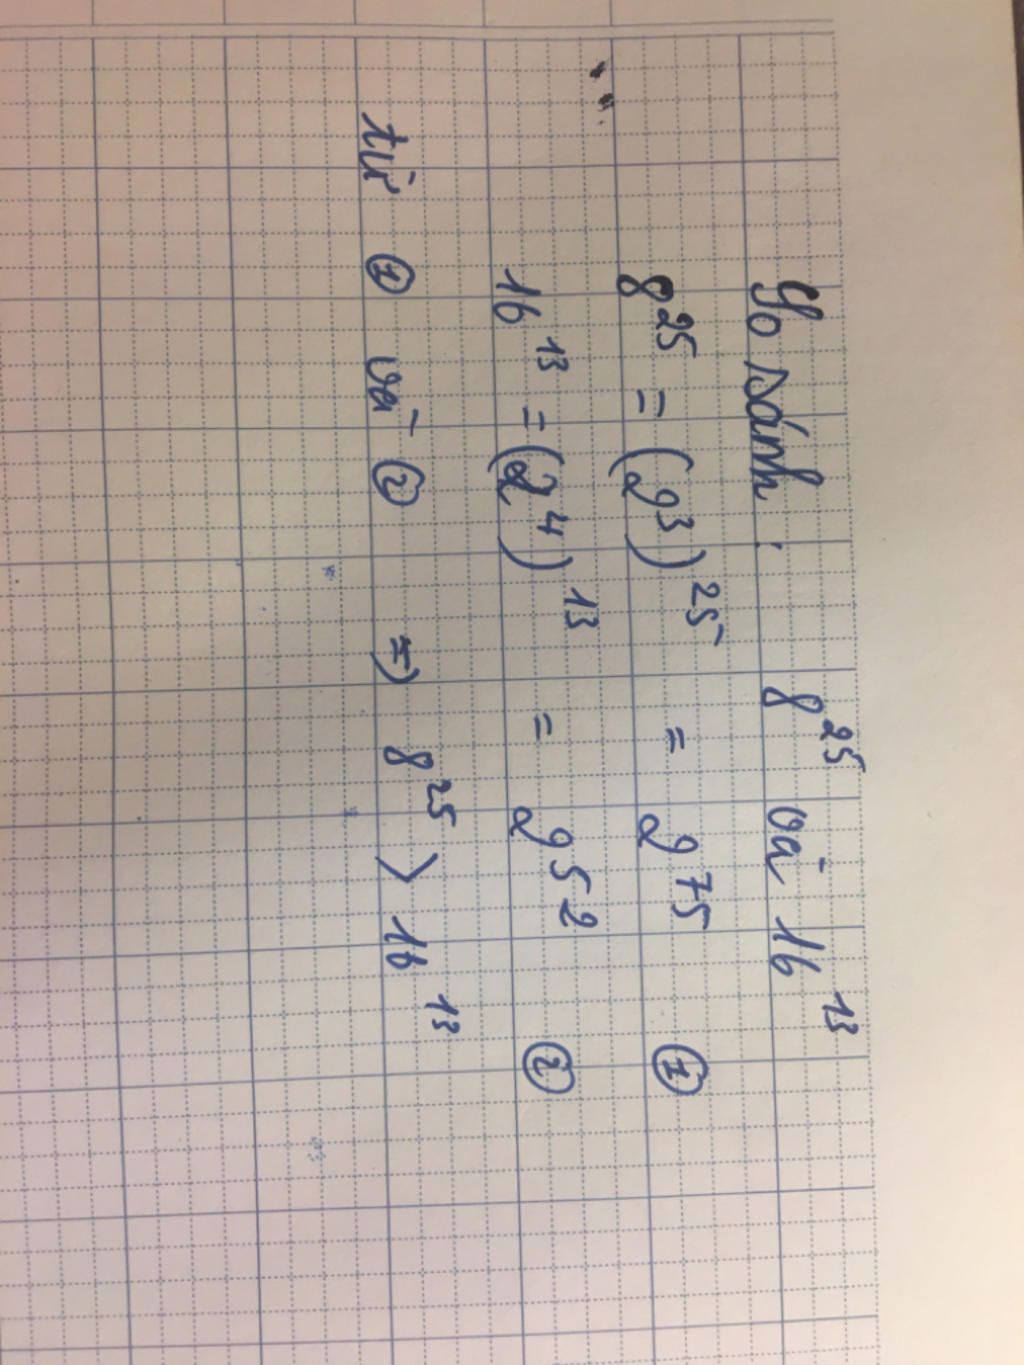 So sánh : 8²⁵ và 16¹³
8²⁵ = (2³)²⁵ = 2⁷⁵ ①
16¹³ = (2⁴)¹³ = 2⁵² ②
từ ① và ② => 8²⁵ > 16¹³